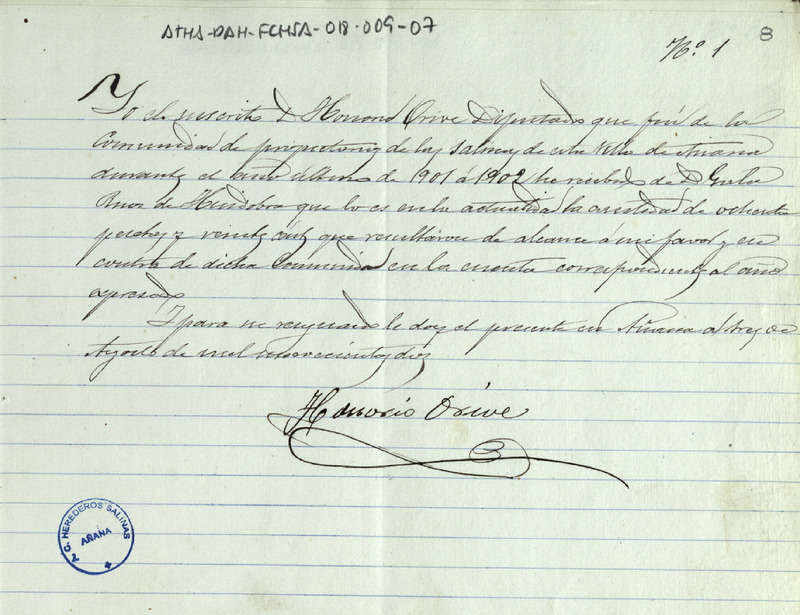 ATHA-DAH-FCHSA-018-009-07
8
Nº. 1
Yo el suscrito D Honorio Orive Diputado que fui de la
Comunidad de propietarios de las Salinas de esta Villa de Añana
durante el año último de 1901 á 1902 he recibido de D
de Huidobro que lo es en la actualidad la cantidad de ochenta
pesetas y veinte cents que resultáron de alcance á mi favor y en
contra de dicha Comunidad en la cuenta correspondiente al año
expresado
Y para su resguardo le doy el presente en Añana á tres de
Agosto de mil novecientos dos
Honorio Orive
C. HEREDEROS SALINAS
AÑANA